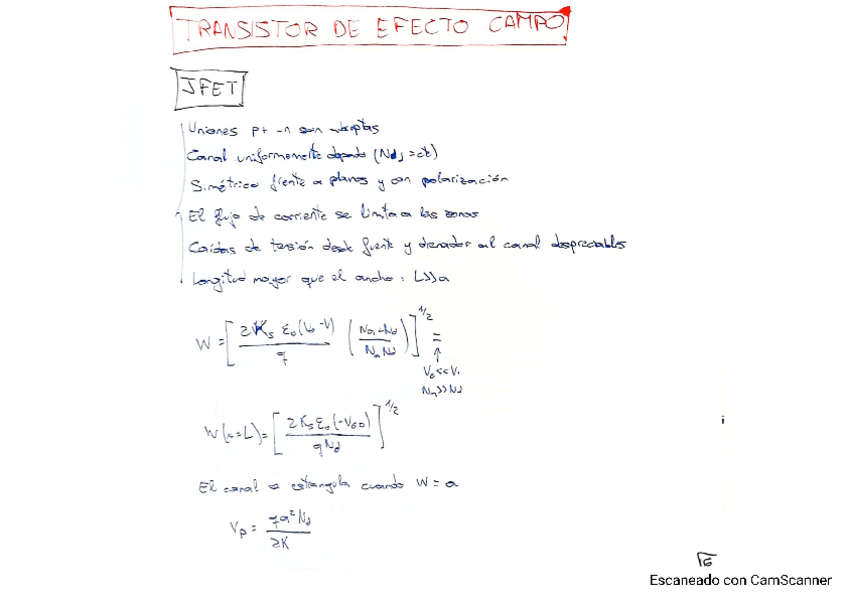 TRANSISTOR DE EFECTO CAMPO
JFET
Uniones p+ -n son abruptas
Canal uniformemente dopado (Nd = cte)
Simétrico frente a planos y con polarización
El flujo de corriente se limita a las zonas
Caídas de tensión desde fuente y drenador al canal despreciables
Longitud mayor que el ancho: L>>a
W = [ 2 Ks ε0 (V0 - V) / q ( Na + Nd / Na Nd ) ]^1/2 =
↑
V0 << V.
Na >> Nd
W(x=L) = [ 2 Ks ε0 (-VGD) / q Nd ]^1/2
El canal se estrangula cuando W = a
Vp = q a² Nd / 2K
i
Escaneado con CamScanner